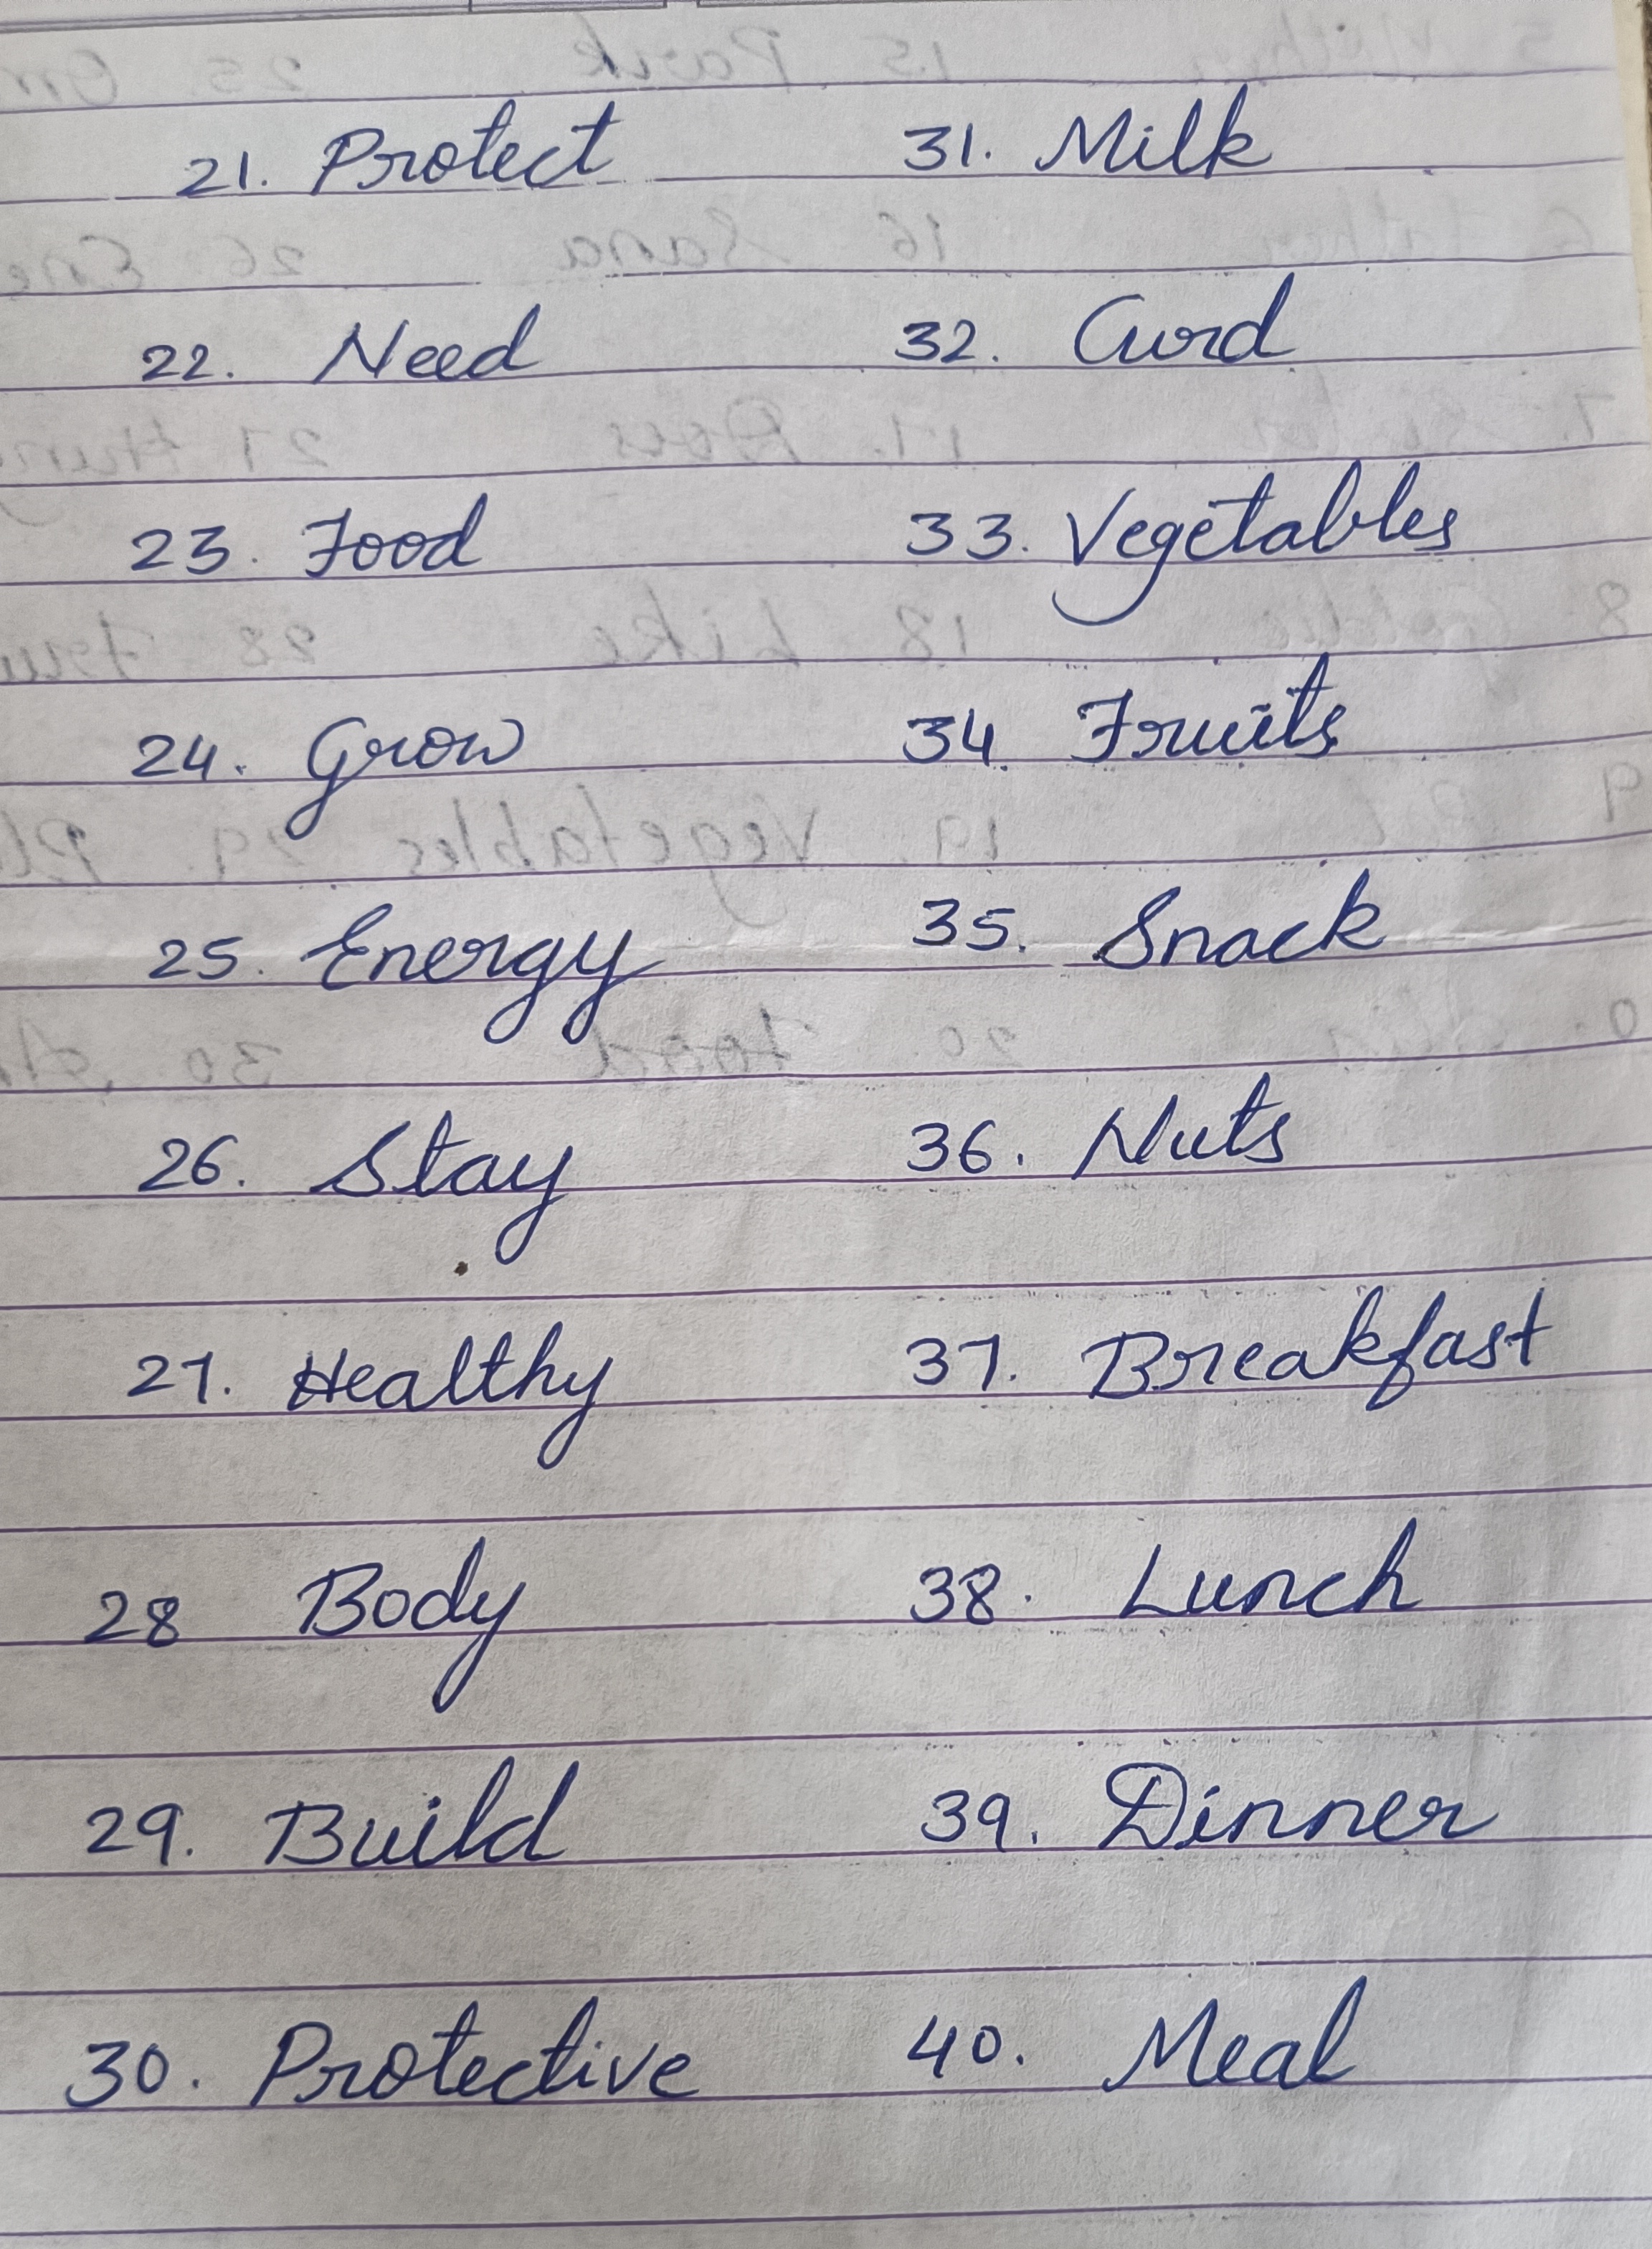 21. Protect
22. Need
23. Food
24. Grow
25. Energy
26. Stay
27. Healthy
28 Body
29. Build
30. Protective
31. Milk
32. Curd
33. Vegetables
34. Fruits
35. Snack
36. Nuts
37. Breakfast
38. Lunch
39. Dinner
40. Meal